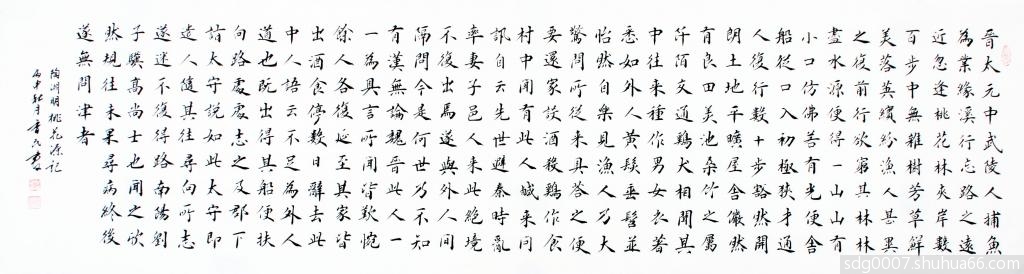 晋太元中武陵人捕魚
為業緣溪行忘路之遠
近忽逢桃花林夾岸數
百步中無雜樹芳草鮮
美落英繽紛漁人甚異
之復前行欲窮其林林
盡水源便得一山山有
小口仿佛若有光便舍
船從口入初極狹才通
人復行數十步豁然開
朗土地平曠屋舍儼然
有良田美池桑竹之屬
阡陌交通鷄犬相聞其
中往來種作男女衣著
悉如外人黃髮垂髫並
怡然自樂見漁人乃大
驚問所從來具答之便
要還家設酒殺鷄作食
村中聞有此人咸來問
訊自云先世避秦時亂
率妻子邑人來此絕境
不復出焉遂與外人間
隔問今是何世乃不知
有漢無論魏晉此人一
一為具言所聞皆歎惋
餘人各復延至其家皆
出酒食停數日辭去此
中人語云不足為外人
道也既出得其船便扶
向路處處志之及郡下
詣太守說如此太守即
遣人隨其往尋向所志
遂迷不復得路南陽劉
子驥高尚士也聞之欣
然規往未果尋病終後
遂無問津者
陶淵明桃花源記
丙申秋月書
sdg0007.shuhua66.com